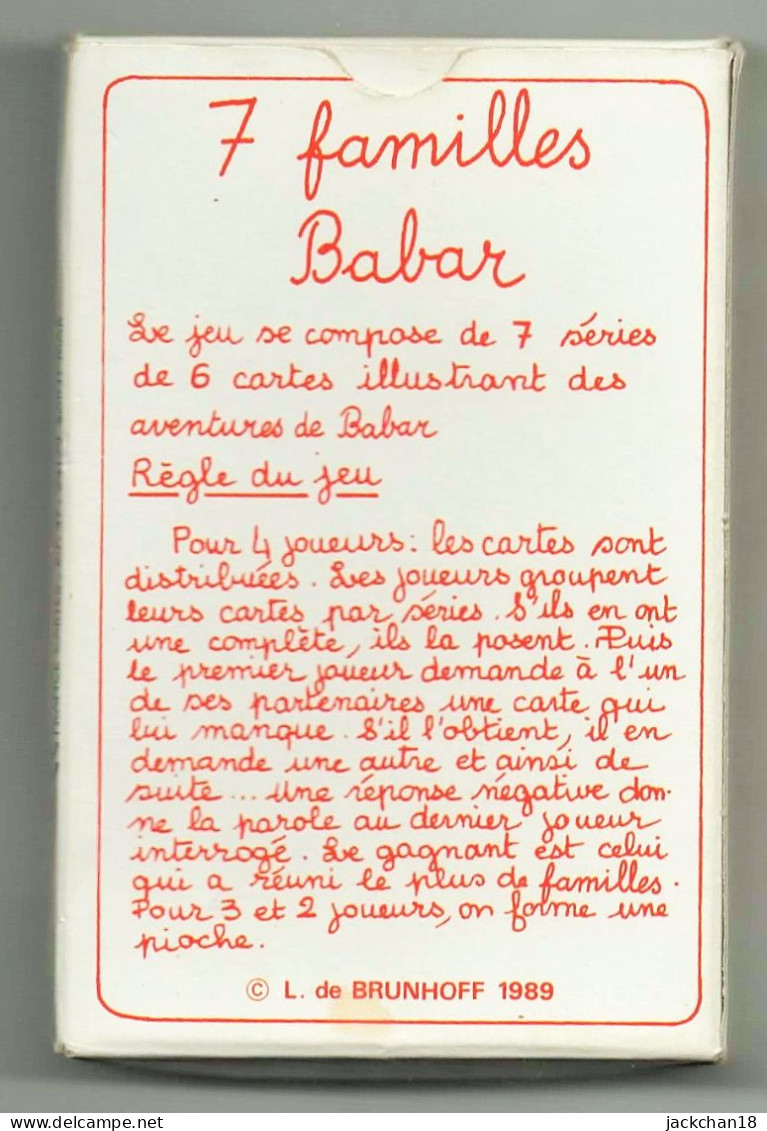 7 familles
Babar
Le jeu se compose de 7 séries
de 6 cartes illustrant des
aventures de Babar
Règle du jeu
Pour 4 joueurs : les cartes sont
distribuées. Les joueurs groupent
leurs cartes par séries. S'ils en ont
une complète, ils la posent. Puis
le premier joueur demande à l'un
de ses partenaires une carte qui
lui manque. S'il l'obtient, il en
demande une autre et ainsi de
suite... une réponse négative don-
ne la parole au dernier joueur
interrogé. Le gagnant est celui
qui a réuni le plus de familles.
Pour 3 et 2 joueurs, on forme une
pioche.
© L. de BRUNHOFF 1989
jackchan18